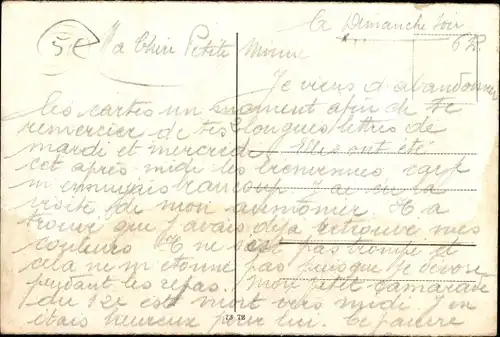 5€
Ce Dimanche Soir
Ma Chère Petite Mimine
62
Je viens d'abandonner
les cartes un moment afin de te
remercier de tes longues lettres de
mardi et mercredi. Elles ont été
cet après midi les bienvenues, car je
m'ennuyais beaucoup. J'ai eu la
visite de mon aumonier. Il a
trouvé que j'avais déjà retrouvé mes
couleurs. Il ne s'est pas trompé et
cela ne m'étonne pas puisque je dévore
pendant les repas. Mon petit camarade
du 12e est mort vers midi. J'en
étais heureux pour lui. Le pauvre